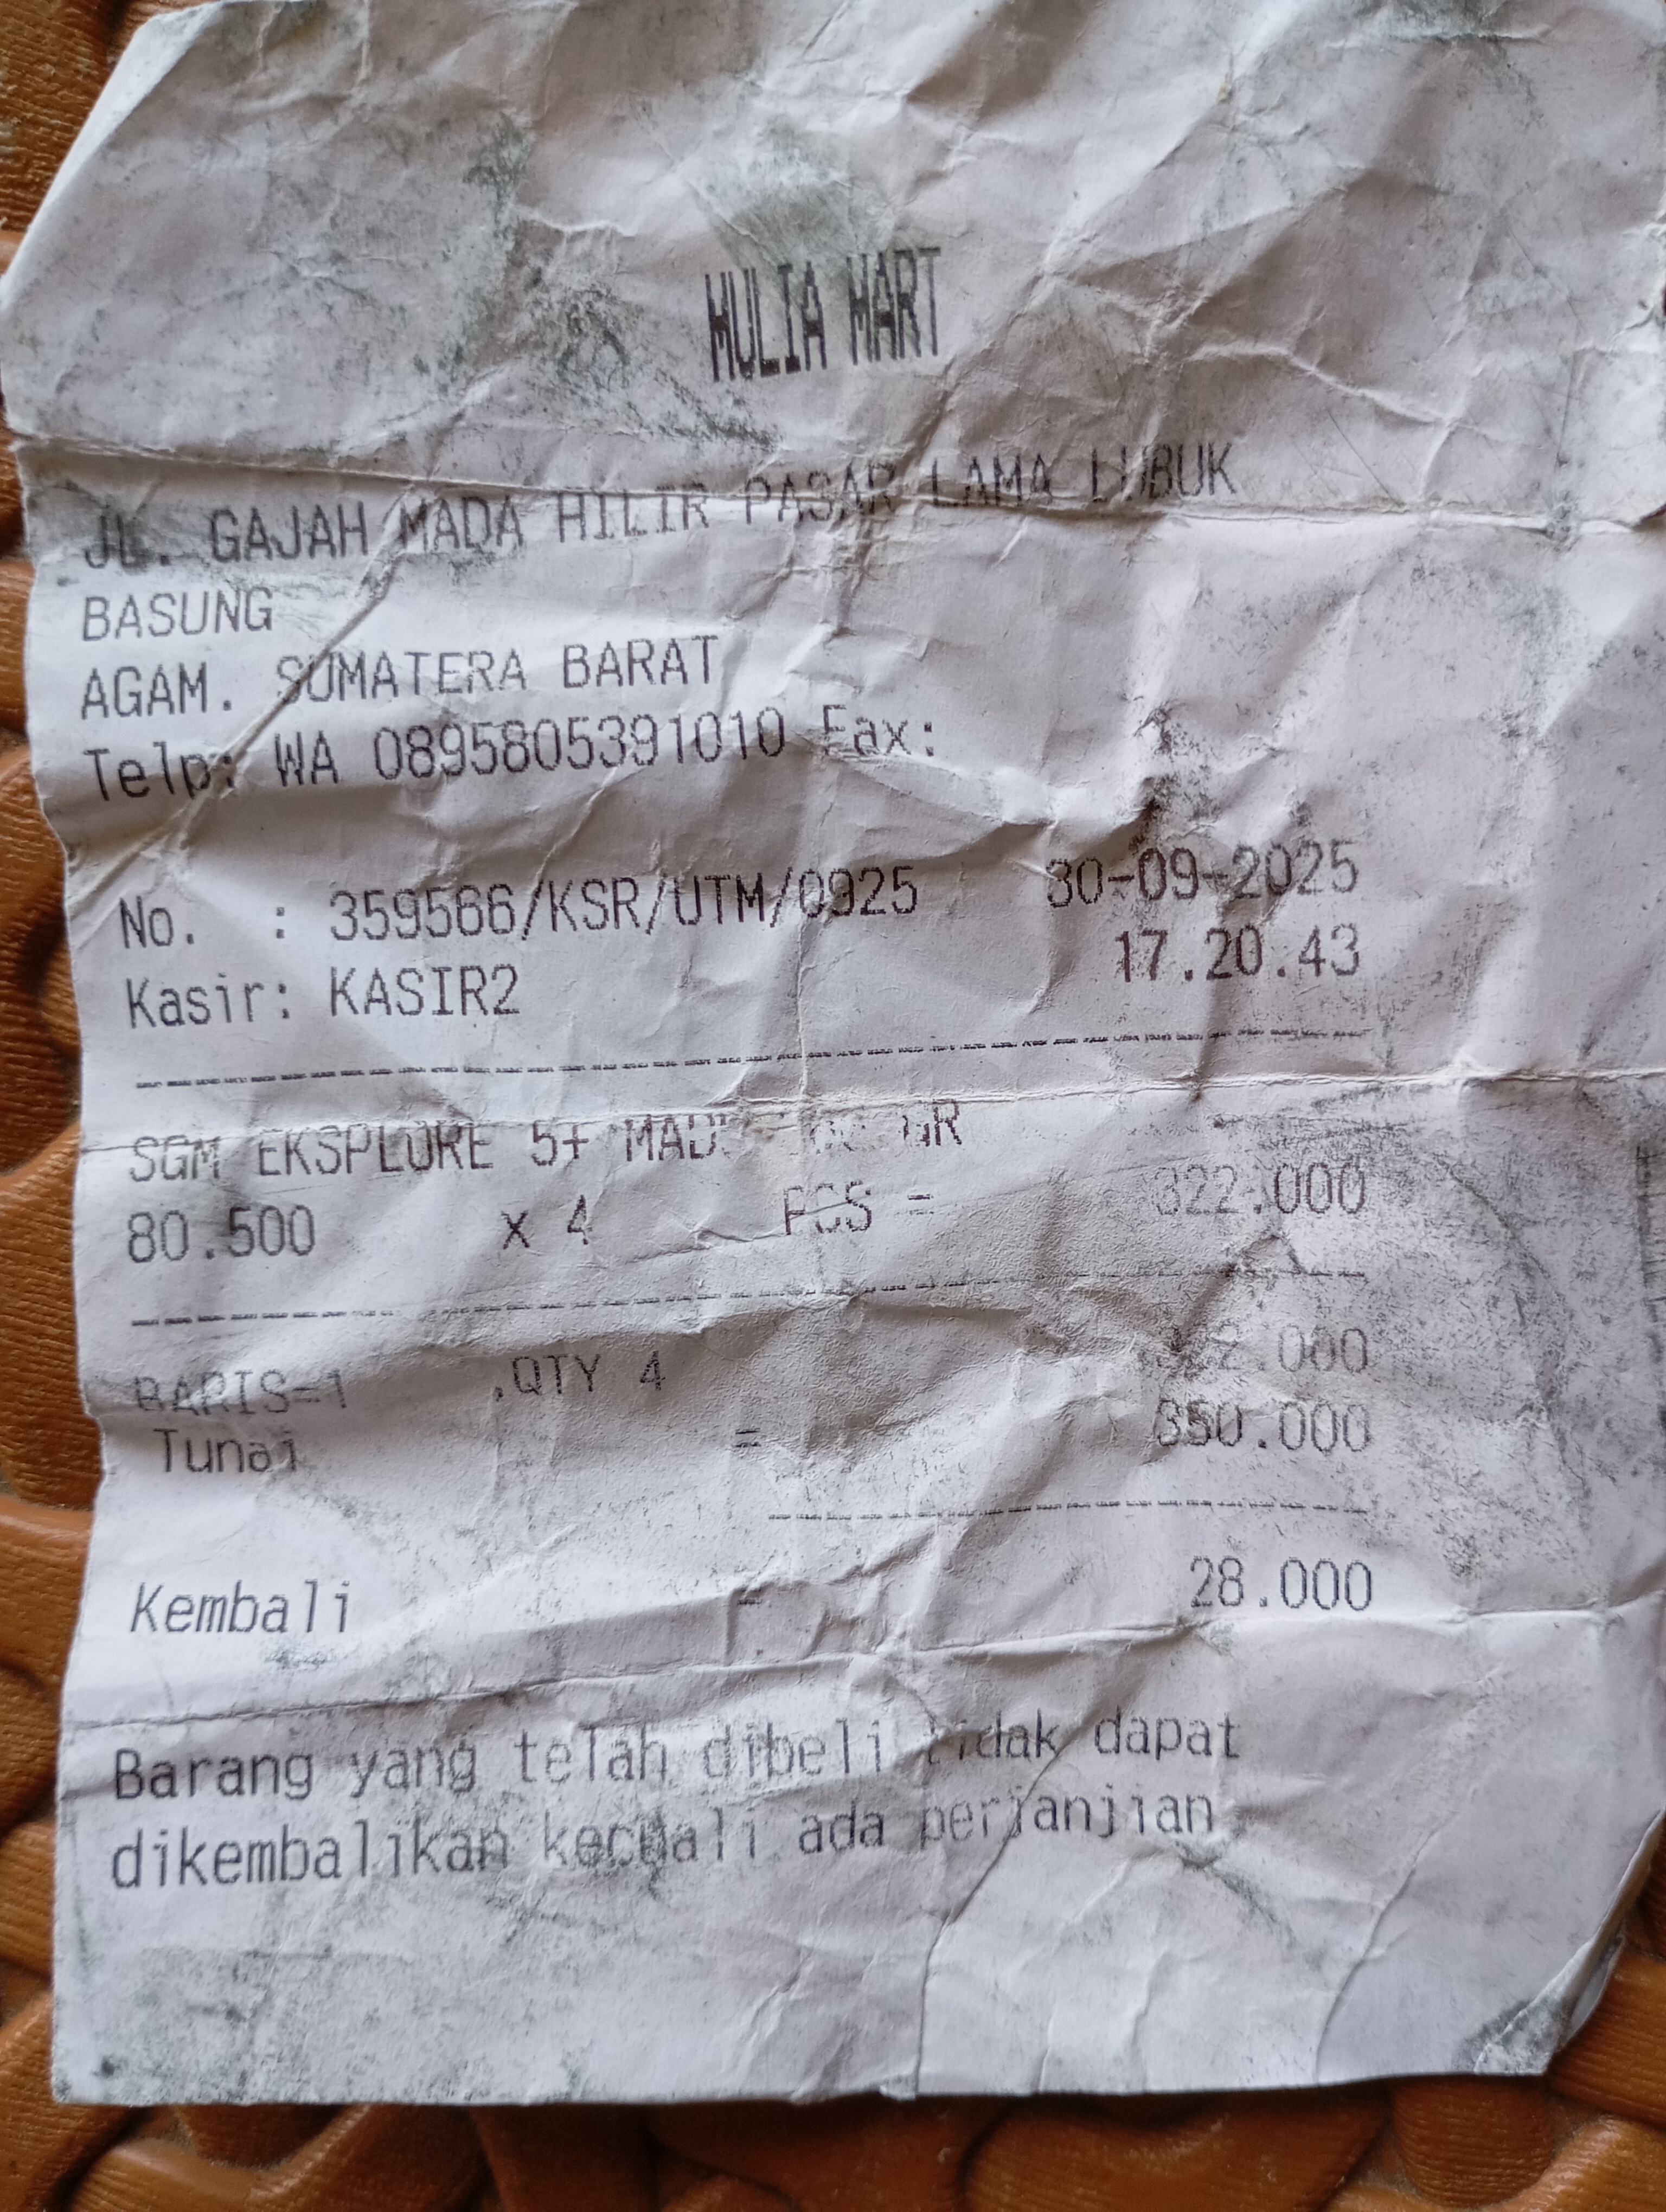 MULIA MART
JL. GAJAH MADA HILIR PASAR LAMA LUBUK
BASUNG
AGAM. SUMATERA BARAT
Telp: WA 0895805391010 Fax:
No. : 359566/KSR/UTM/0925 30-09-2025
Kasir: KASIR2 17.20.43
SGM EKSPLORE 5+ GR
80.500 x 4 PCS = 322.000
BARIS=1 ,QTY 4
Tunai = 350.000
Kembali = 28.000
Barang yang telah dibeli tidak dapat
dikembalikan kecuali ada perjanjian